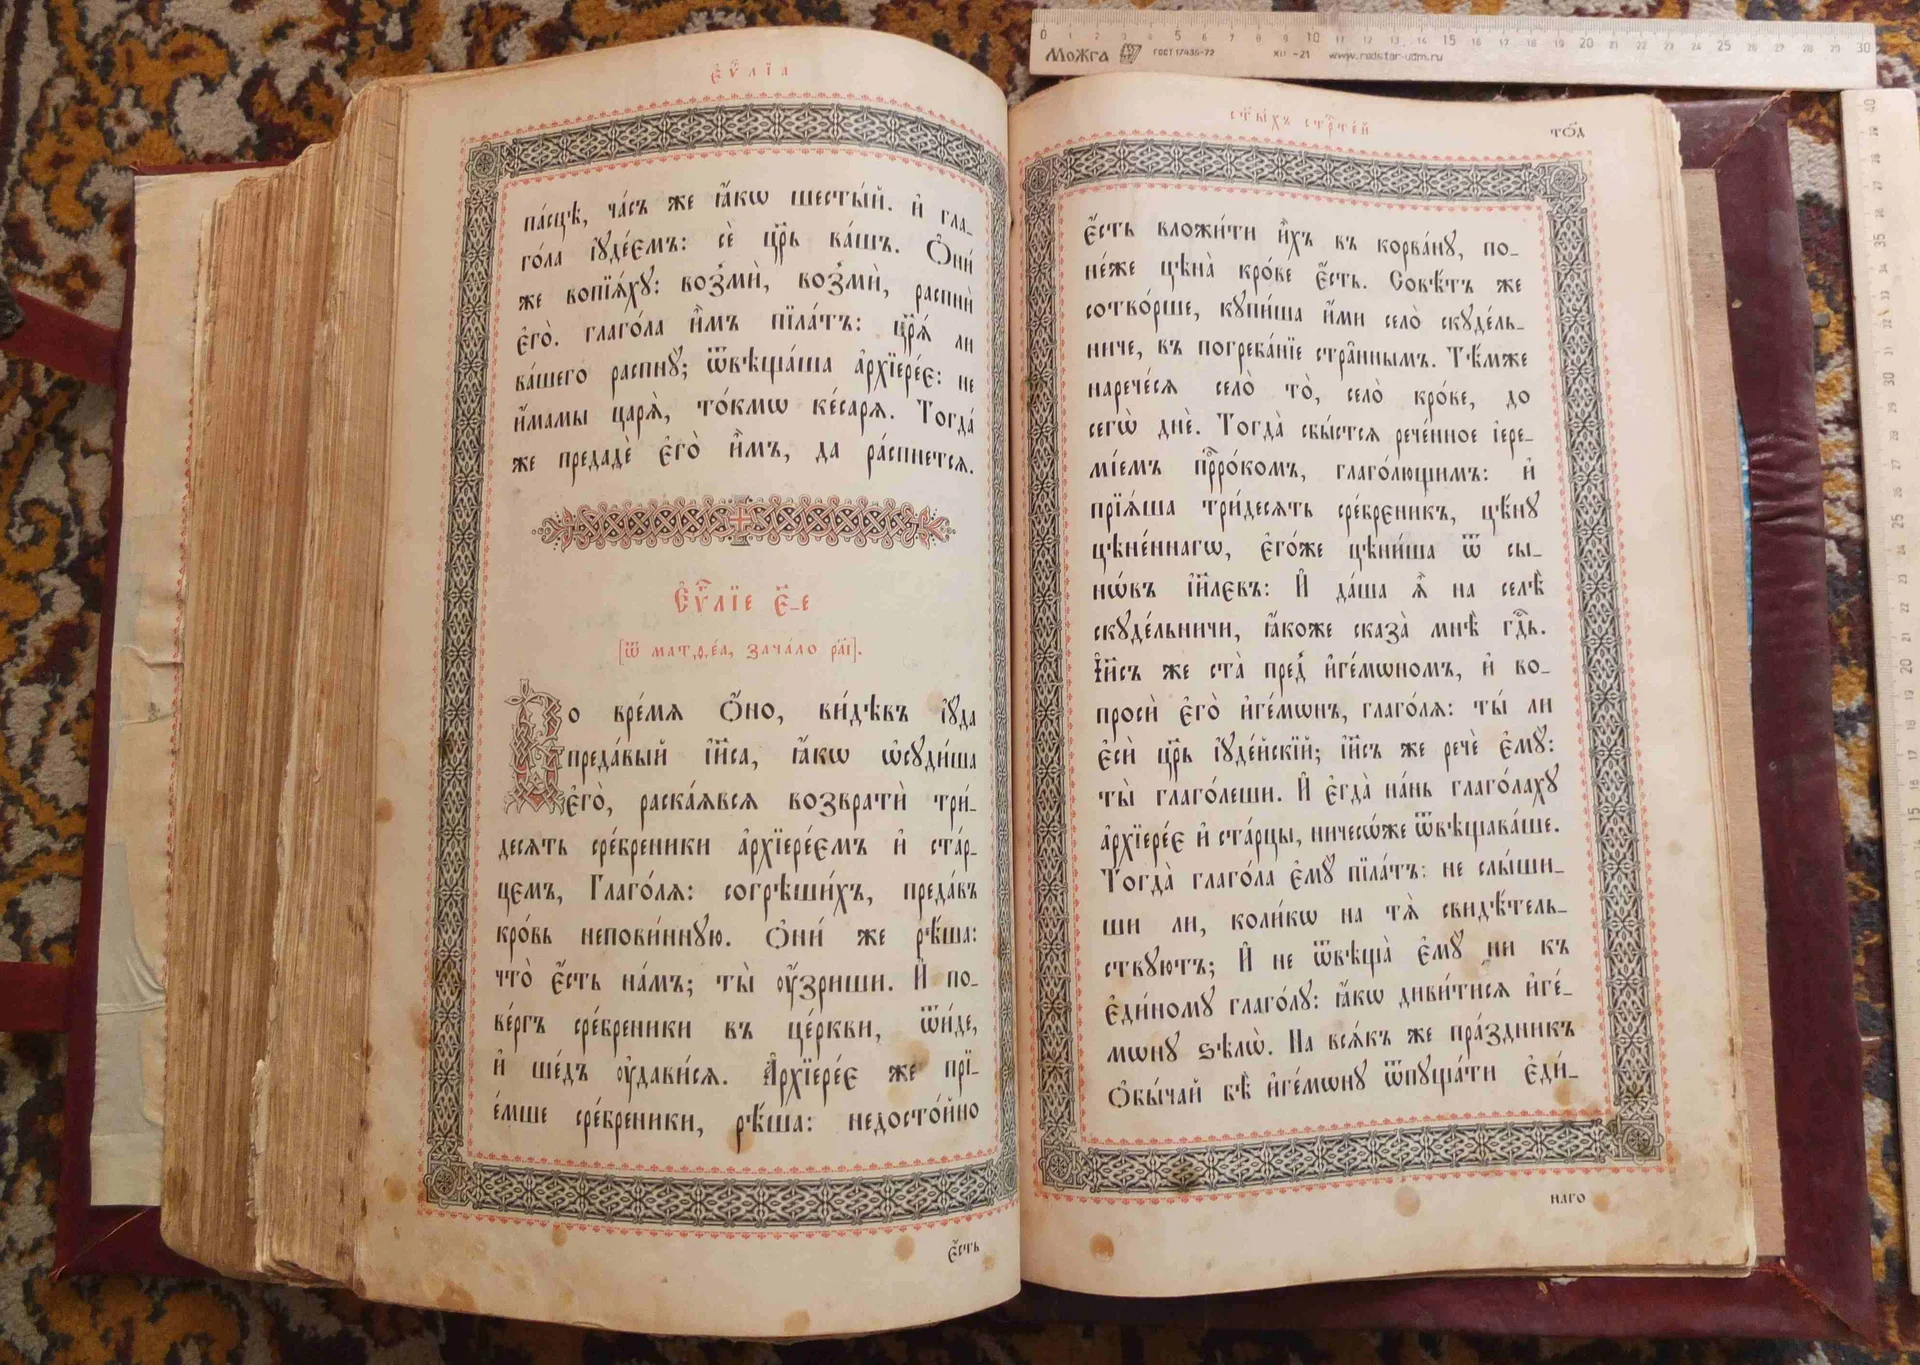 Е҆ѵⷢ҇лїа
па́сцѣ, ча́съ же ꙗ҆́кѡ шесты́й. И҆ гла_
го́ла і҆ꙋде́ємъ: сѐ цр҃ь ва́шъ. Ѻ҆ни́
же вопїѧ́хꙋ: возмѝ, возмѝ, распнѝ
є҆го̀. глаго́ла и҆̀мъ пїла́тъ: цр҃ѧ́ ли
ва́шего распнꙋ̀; ѿвѣща́ша а҆рхїере́є: не
и҆́мамы царѧ̀, то́кмѡ ке́сарѧ. Тогда́
же предадѐ є҆го̀ и҆̀мъ, да ра́спнетсѧ.
Е҆ѵⷢ҇лїе є҃_е
[ѿ матѳе́а, зача́ло раі҃].
Во вре́мѧ ѻ҆́но, ви́дѣвъ і҆ꙋ́да
преда́вый і҆и҃са, ꙗ҆́кѡ ѡ҆сꙋди́ша
є҆го̀, раска́ѧвсѧ возвратѝ три́_
десѧть сре́бреники а҆рхїере́ємъ и҆ ста́р_
цемъ, Глаго́лѧ: согрѣши́хъ, преда́въ
кро́вь непови́ннꙋю. Ѻ҆ни́ же рѣ́ша:
что̀ є҆́сть на́мъ; ты̀ ᲂу҆́зриши. И҆ по_
ве́ргъ сре́бреники въ це́ркви, ѿи́де,
и҆ ше́дъ ᲂу҆дави́сѧ. А҆рхїере́є же прї_
е́мше сре́бреники, рѣ́ша: недосто́йно
є҆́сть
ст҃ы́хъ стрⷭ҇те́й
то́д
є҆́сть вложи́ти и҆̀хъ въ корва́нꙋ, по_
не́же цѣна̀ кро́ве є҆́сть. Совѣ́тъ же
сотво́рше, кꙋпи́ша и҆́ми село̀ скꙋде́ль_
ниче, въ погреба́нїе стра̑ннымъ. Тѣ́мже
нарече́сѧ село̀ то̀, село̀ кро́ве, до
сегѡ̀ днѐ. Тогда̀ сбы́стсѧ рече́нное і҆ере_
мі́емъ прⷪ҇ро́комъ, глаго́лющимъ: и҆
прїѧ́ша три́десѧть сре́брєникъ, цѣ́нꙋ
цѣне́ннагѡ, є҆го́же цѣни́ша ѿ сы_
нѡ́въ і҆и҃лєвъ: И҆ да́ша ѧ҆̀ на селѣ̀
скꙋде́льничи, ꙗ҆́коже сказа̀ мнѣ̀ гдⷭ҇ь.
І҆и҃съ же ста̀ пред̾ и҆ге́мѡномъ, и҆ во_
просѝ є҆го̀ и҆ге́мѡнъ, глаго́лѧ: ты́ ли
є҆сѝ цр҃ь і҆ꙋде́йскїй; і҆и҃съ же речѐ є҆мꙋ̀:
ты̀ глаго́леши. И҆ є҆гда̀ на́нь глаго́лахꙋ
а҆рхїере́є и҆ ста́рцы, ничесѡ́же ѿвѣщава́ше.
Тогда̀ глаго́ла є҆мꙋ̀ пїла́тъ: не слы́ши_
ши ли, коли́кѡ на тѧ̀ свидѣ́тель_
ствꙋютъ; И҆ не ѿвѣща̀ є҆мꙋ̀ ни къ
є҆ди́номꙋ глаго́лꙋ: ꙗ҆́кѡ диви́тисѧ и҆ге́_
мѡнꙋ ѕѣлѡ̀. На всѧ́къ же пра́здникъ
Ѻ҆бы́чай бѣ̀ и҆ге́мѡнꙋ ѿпꙋща́ти є҆ди́_
наго
0 1 2 3 4 5 6 7 8 9 10 11 12 13 14 15 16 17 18 19 20 21 22 23 24 25 26 27 28 29 30
Можга ГОСТ 17435-72 www.redstar-udm.ru